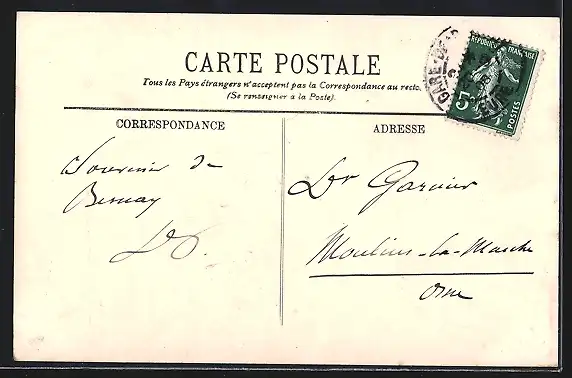 CARTE POSTALE
Tous les Pays étrangers n'acceptent pas la Correspondance au recto.
(Se renseigner à la Poste).
CORRESPONDANCE
ADRESSE
REPUBLIQUE FRANÇAISE
5c
POSTES
GARE
Souvenir de
Bernay
Dr Garnier
Moulins-la-Marche
Orne